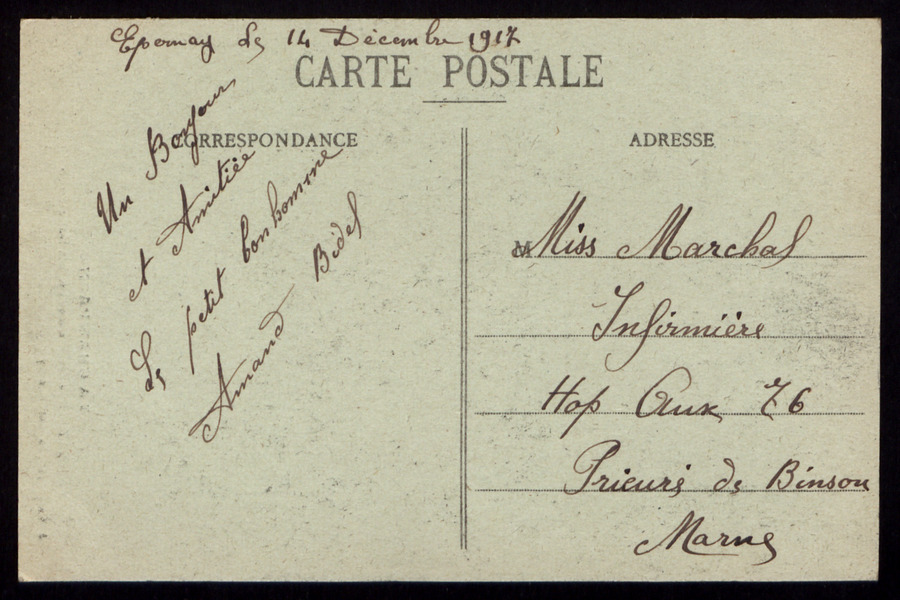 Epernay le 14 Décembre 1917
CARTE POSTALE
CORRESPONDANCE
Un Bonjour
et Amitiée
Le petit bonhomme
Amand Bidel
ADRESSE
M Miss Marchal
Infirmière
Hop Aux 76
Prieuré de Binson
Marne